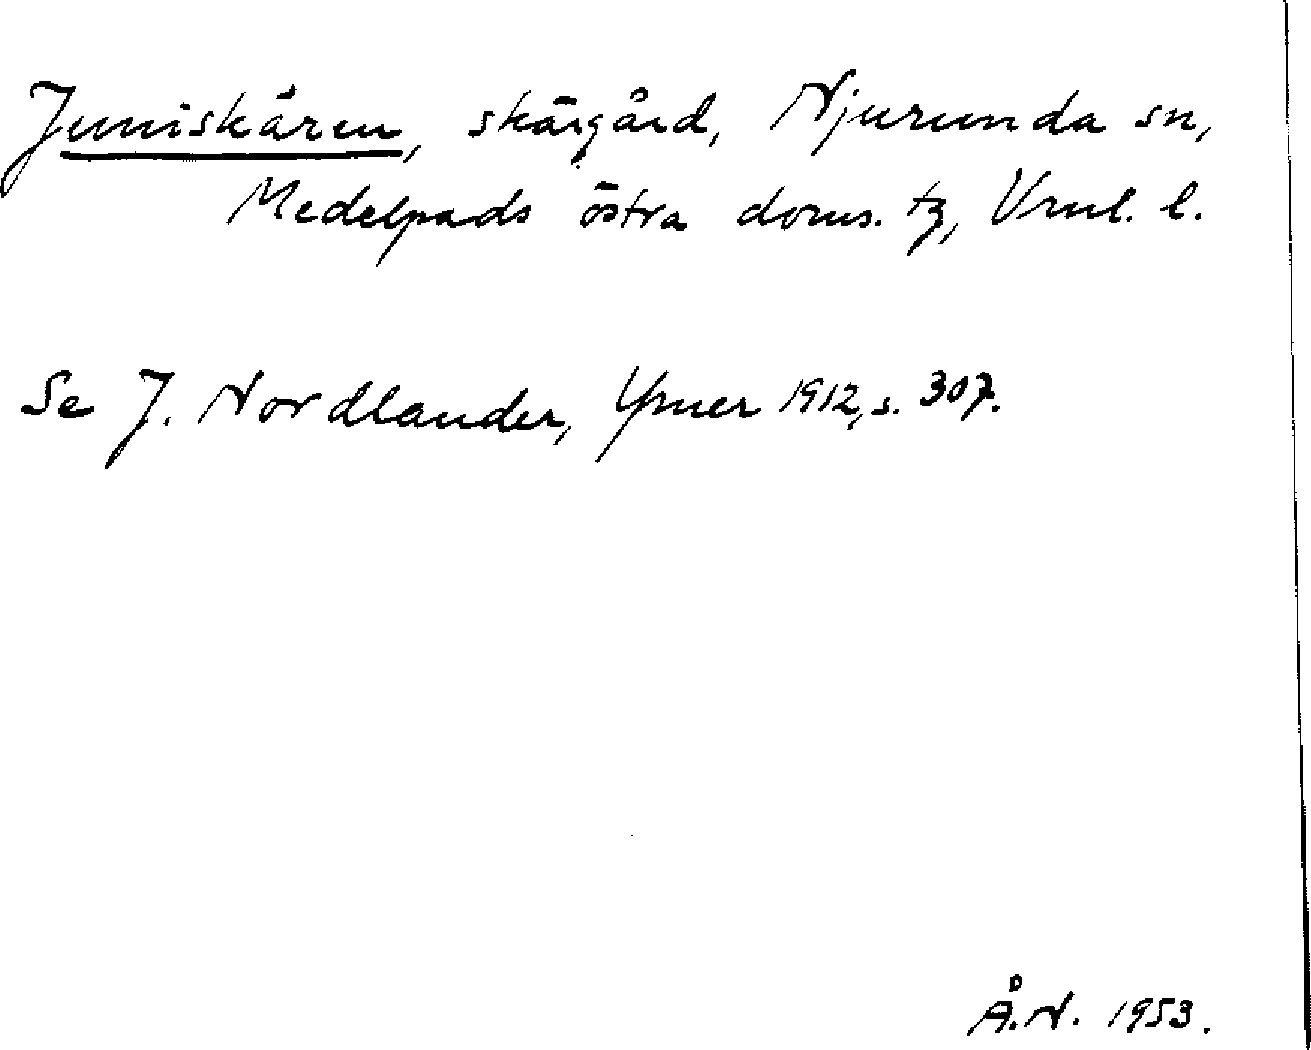 Juniskären, skärgård, Njurunda sn,
Medelpads östra doms. tg, Vrnl. l.
Se J. Nordlander, Ymer 1912, s. 307.
Å.N. 1953.